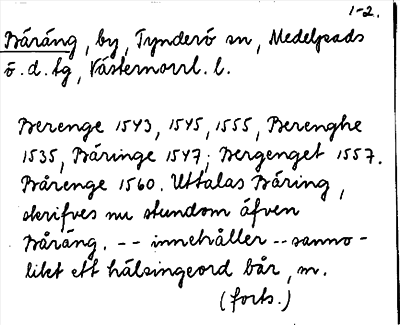 1-2.
Båräng, by, Tynderö sn, Medelpads
ö. d. tg, Västernorrl. l.
Berenge 1543, 1545, 1555, Berenghe
1535, Båringe 1547; Bergenget 1557.
Bårenge 1560. Uttalas Båring,
skrifves nu stundom äfven
Båräng. -- innehåller -- sanno-
likt ett hälsingeord bår, m.
(forts.)